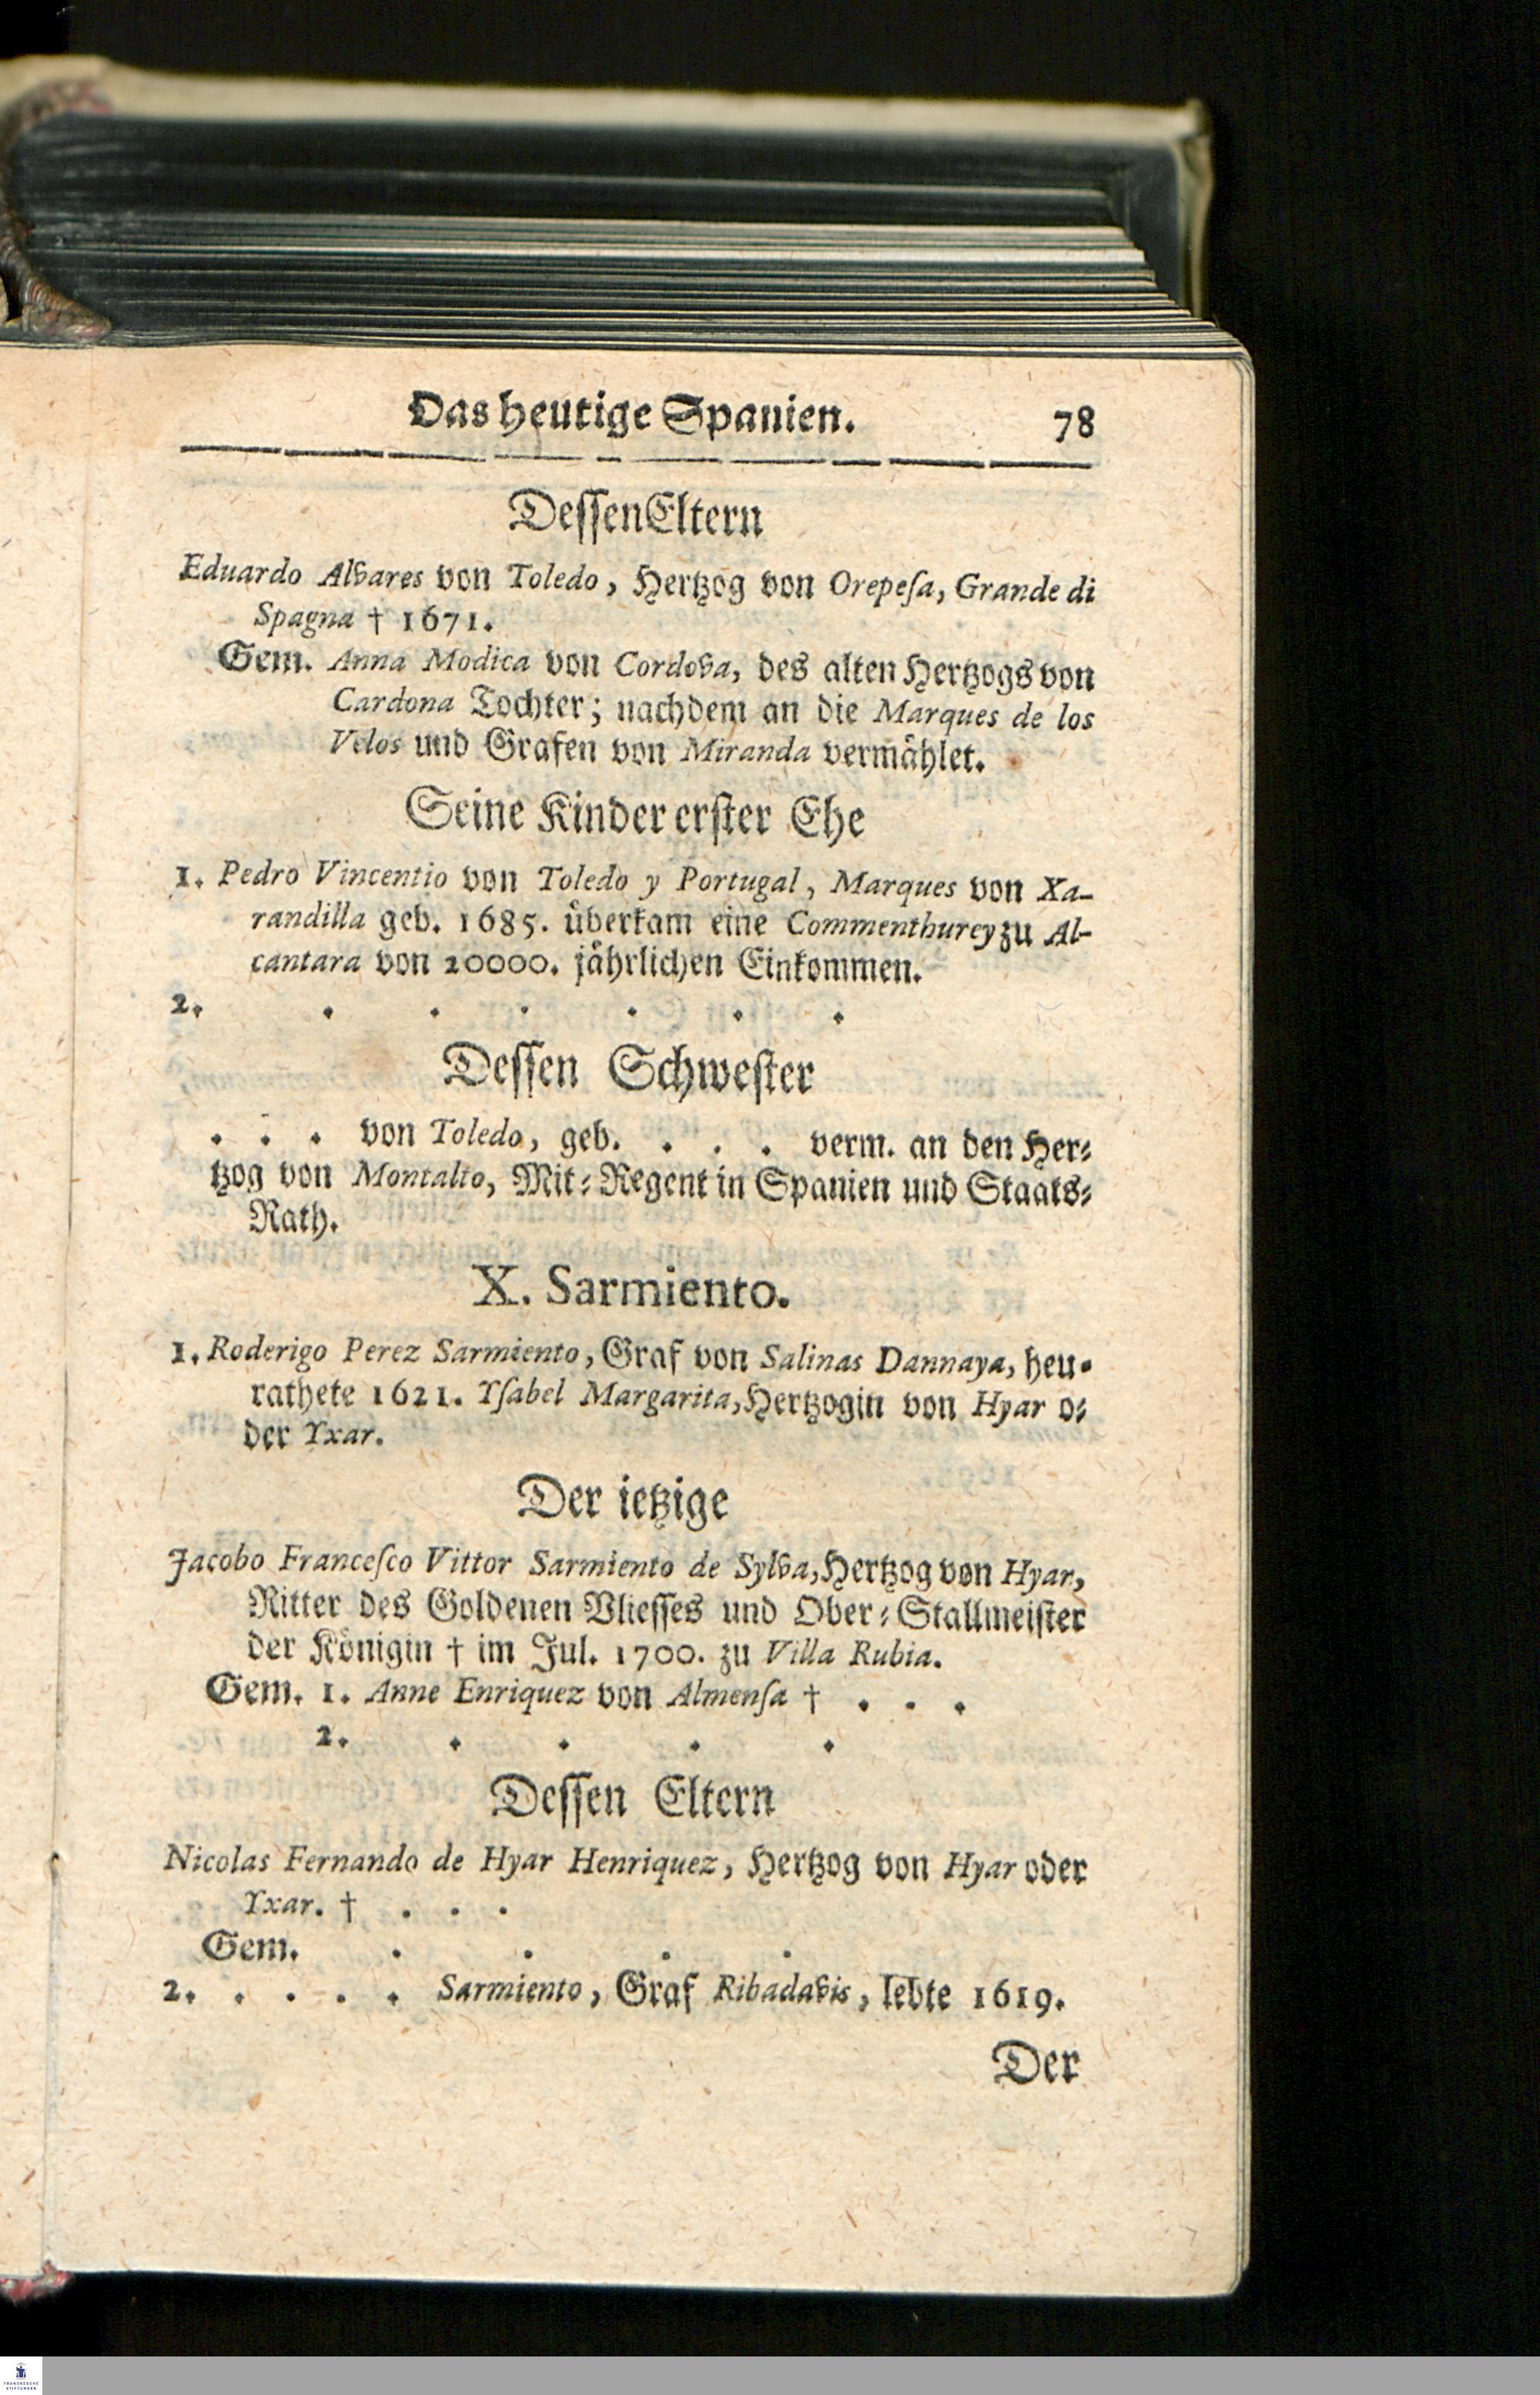 Das heutige Spanien. 78
Dessen Eltern
Eduardo Alvares von Toledo, Hertzog von Orepesa, Grande di
Spagna † 1671.
Gem. Anna Modica von Cordova, des alten Hertzogs von
Cardona Tochter; nachdem an die Marques de los
Velos und Grafen von Miranda vermählet.
Seine Kinder erster Ehe
1. Pedro Vincentio von Toledo y Portugal, Marques von Xa-
randilla geb. 1685. überkam eine Commenthurey zu Al-
cantara von 20000. jährlichen Einkommen.
2. . . . . . .
Dessen Schwester
. . . von Toledo, geb. . . . verm. an den Her-
tzog von Montalto, Mit-Regent in Spanien und Staats-
Rath.
X. Sarmiento.
1. Roderigo Perez Sarmiento, Graf von Salinas Dannaya, heu-
rathete 1621. Ysabel Margarita, Hertzogin von Hyar o-
der Yxar.
Der ietzige
Jacobo Francesco Vittor Sarmiento de Sylva, Hertzog von Hyar,
Ritter des Goldenen Vliesses und Ober-Stallmeister
der Königin † im Jul. 1700. zu Villa Rubia.
Gem. 1. Anne Enriquez von Almensa † . . .
2. . . . .
Dessen Eltern
Nicolas Fernando de Hyar Henriquez, Hertzog von Hyar oder
Yxar. † . . .
Gem. . . . .
2. . . . . Sarmiento, Graf Ribadavis, lebte 1619.
Der
FRANCKESCHE
STIFTUNGEN